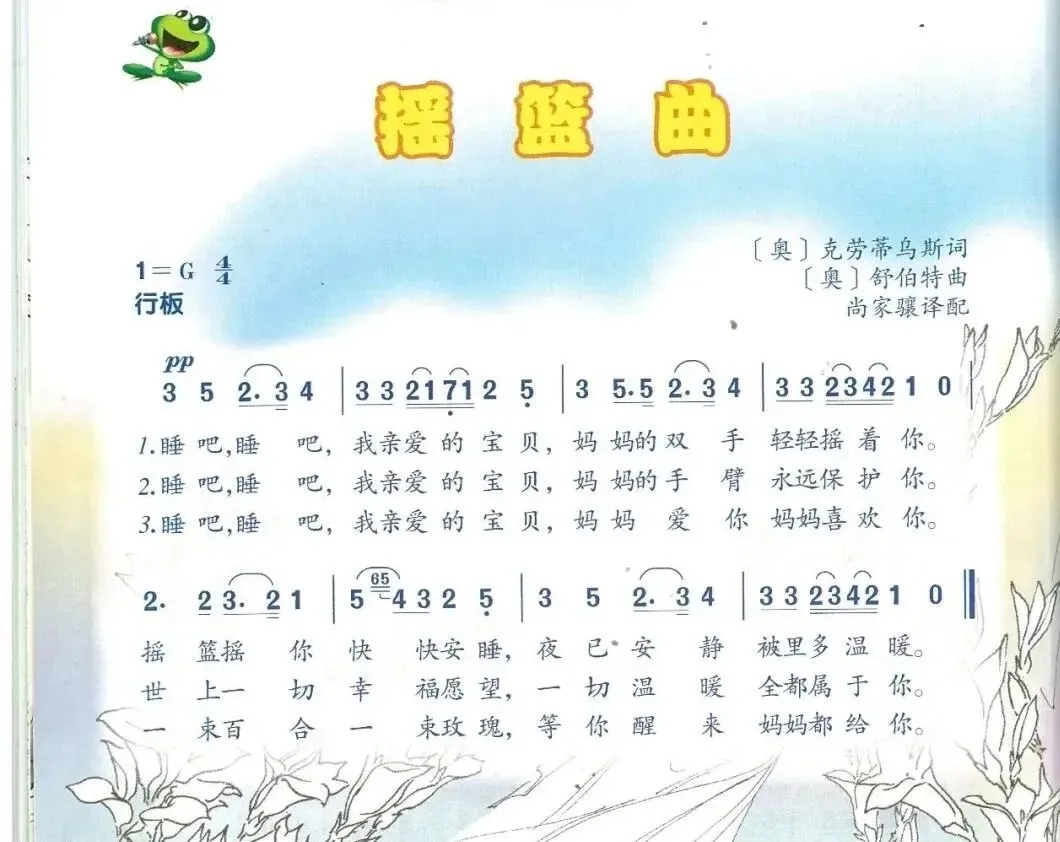 摇篮曲
〔奥〕克劳蒂乌斯词
1=G 4/4
〔奥〕舒伯特曲
行板
尚家骧译配
pp
3 5 2. 3 4 | 3 3 2 1 7 1 2 5 | 3 5. 5 2. 3 4 | 3 3 2 3 4 2 1 0 |
1.睡 吧,睡 吧, 我亲爱 的 宝 贝, 妈 妈的双 手 轻轻摇 着 你。
2.睡 吧,睡 吧, 我亲爱 的 宝 贝, 妈 妈的手 臂 永远保 护 你。
3.睡 吧,睡 吧, 我亲爱 的 宝 贝, 妈 妈 爱 你 妈妈喜 欢 你。
65
2. 2 3. 2 1 | 5 4 3 2 5 | 3 5 2. 3 4 | 3 3 2 3 4 2 1 0
摇 篮摇 你 快 快安 睡, 夜 已 安 静 被里多 温 暖。
世 上一 切 幸 福愿 望, 一 切 温 暖 全都属 于 你。
一 束百 合 一 束玫 瑰, 等 你 醒 来 妈妈都 给 你。